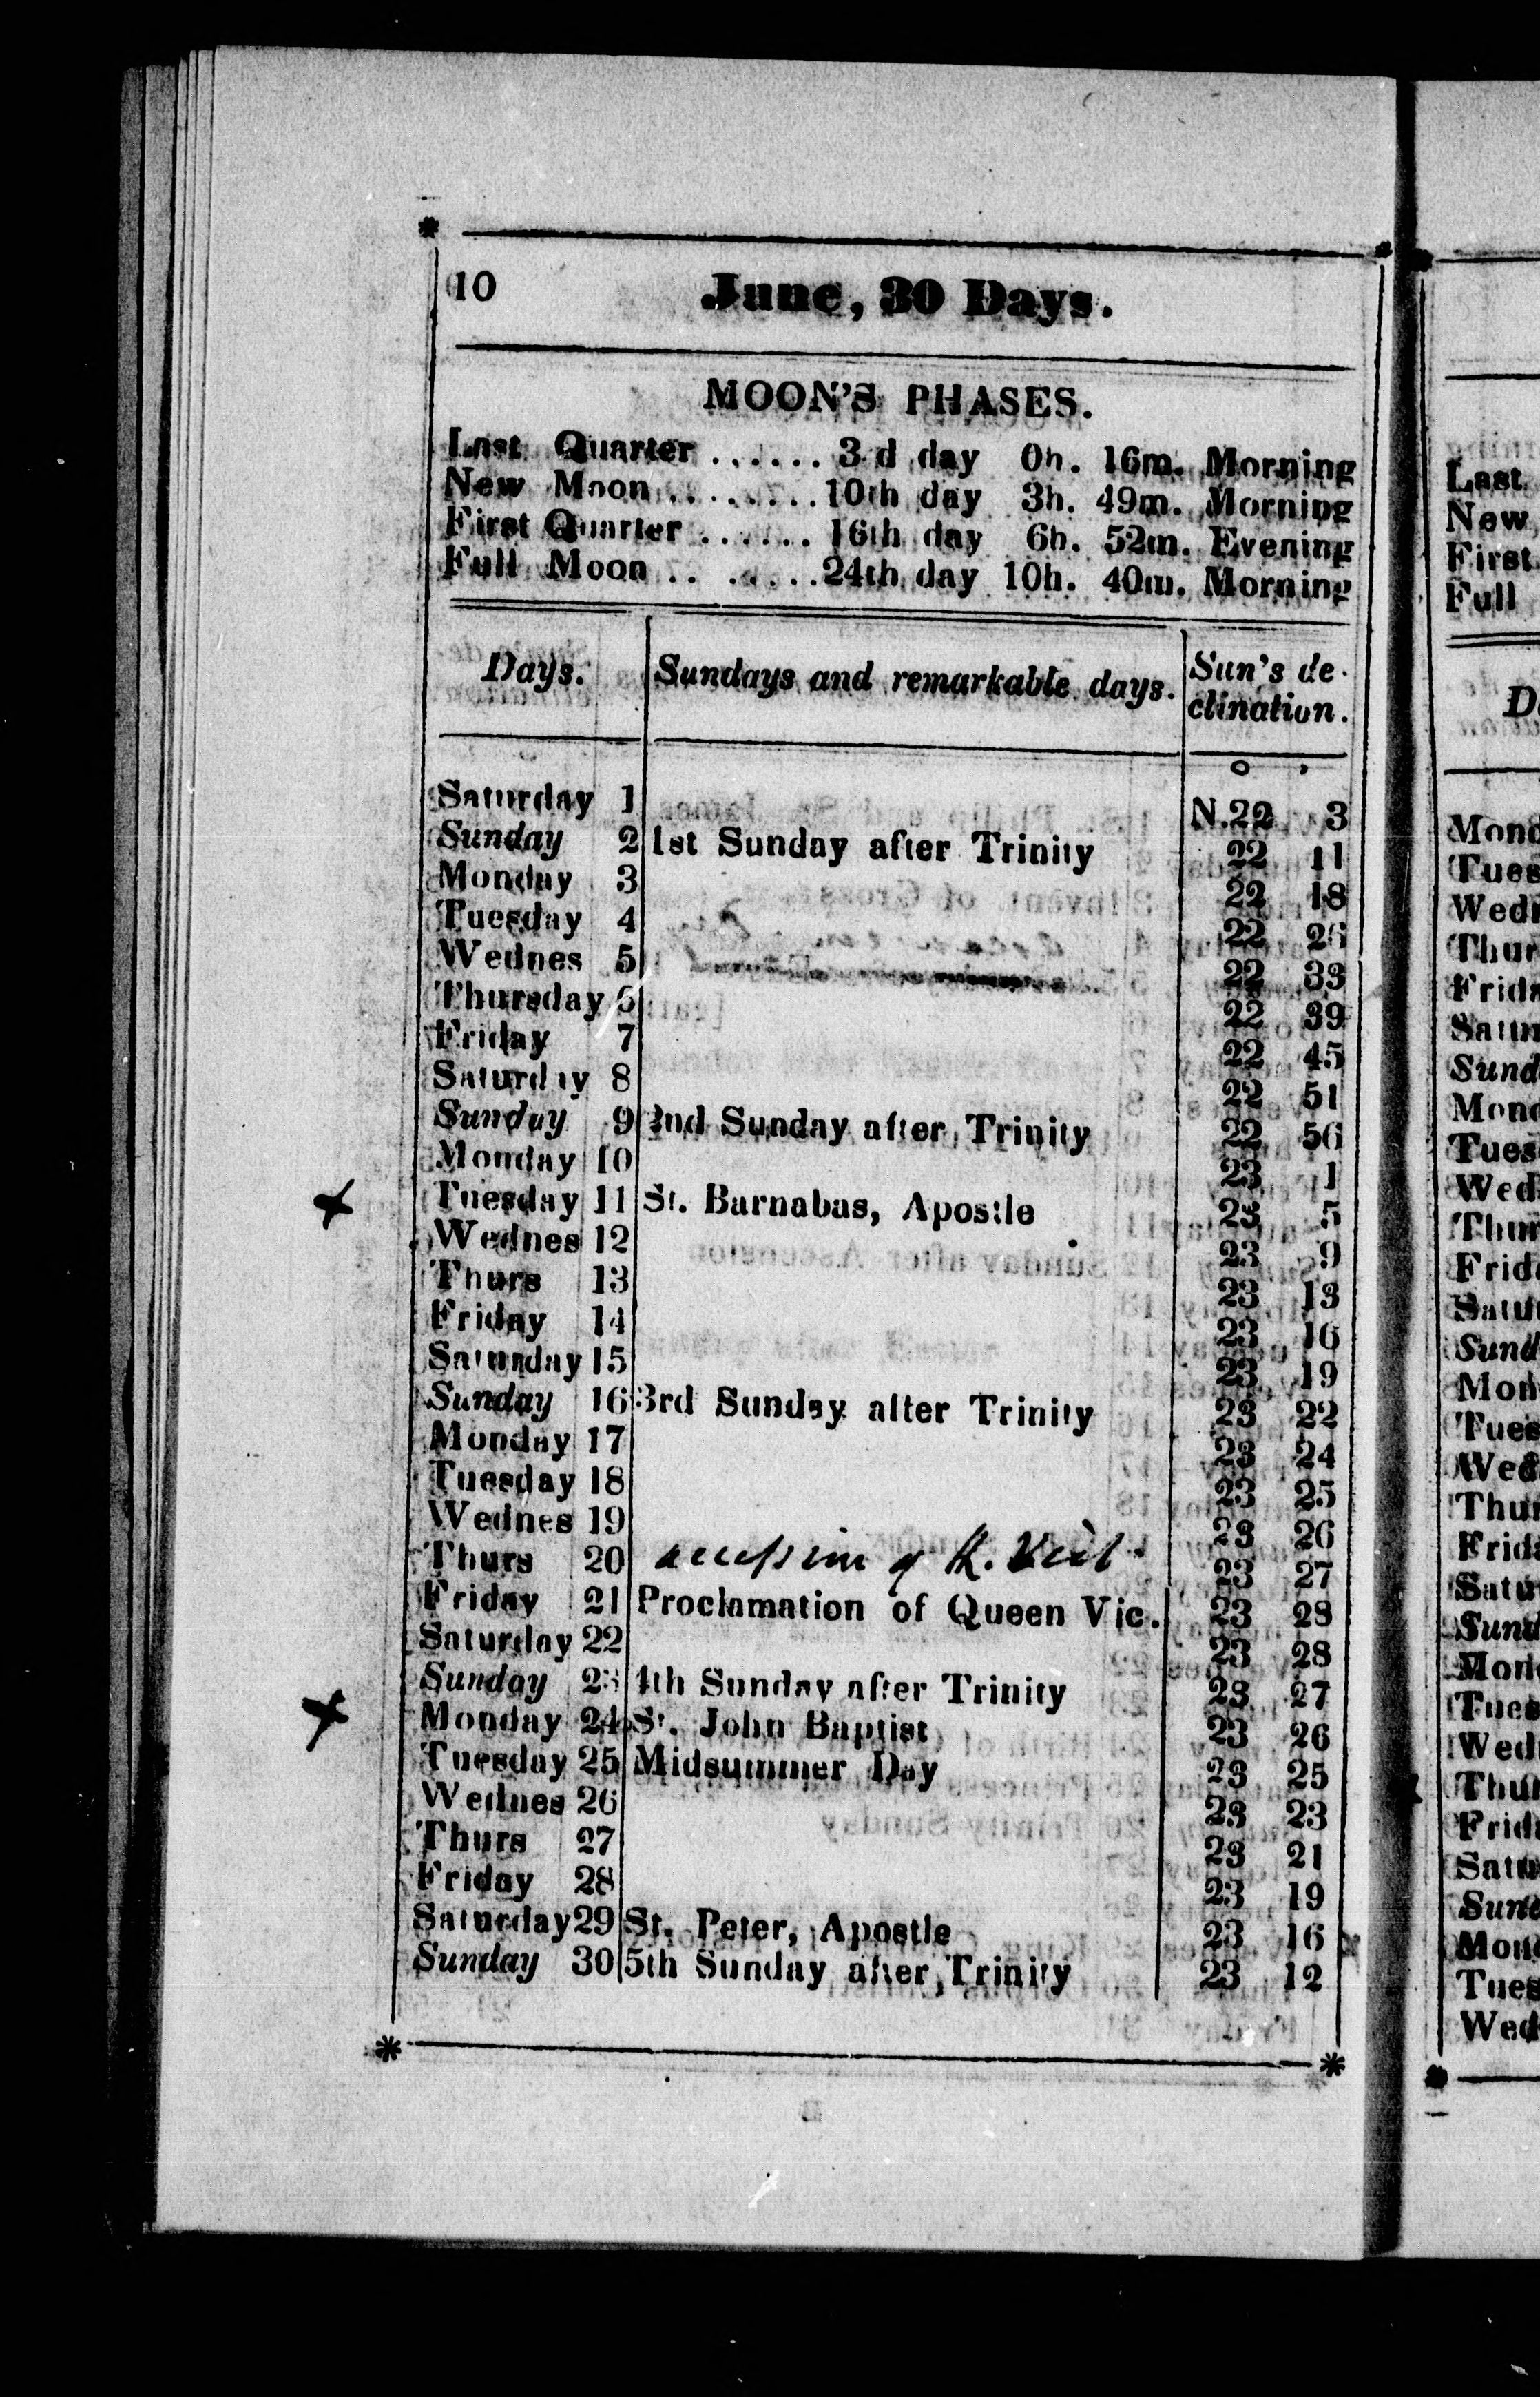 10 June, 30 Days.
MOON'S PHASES.
Last Quarter ...... 3 d day 0h. 16m. Morning
New Moon ........ 10th day 3h. 49m. Morning
First Quarter ...... 16th day 6h. 52m. Evening
Full Moon .. ..... 24th day 10h. 40m. Morning
Days. Sundays and remarkable days. Sun's de-
clination.
° '
Saturday 1 N.22 3
Sunday 2 1st Sunday after Trinity 22 11
Monday 3 22 18
Tuesday 4 22 26
Wednes 5 22 33
Thursday 6 22 39
Friday 7 22 45
Saturday 8 22 51
Sunday 9 2nd Sunday after Trinity 22 56
Monday 10 23 1
Tuesday 11 St. Barnabas, Apostle 23 5
Wednes 12 23 9
Thurs 13 23 13
Friday 14 23 16
Saturday 15 23 19
Sunday 16 3rd Sunday after Trinity 23 22
Monday 17 23 24
Tuesday 18 23 25
Wednes 19 23 26
Thurs 20 accession of Q. Vict. 23 27
Friday 21 Proclamation of Queen Vic. 23 28
Saturday 22 23 28
Sunday 23 4th Sunday after Trinity 23 27
Monday 24 St. John Baptist 23 26
Tuesday 25 Midsummer Day 23 25
Wednes 26 23 23
Thurs 27 23 21
Friday 28 23 19
Saturday 29 St. Peter, Apostle 23 16
Sunday 30 5th Sunday after Trinity 23 12